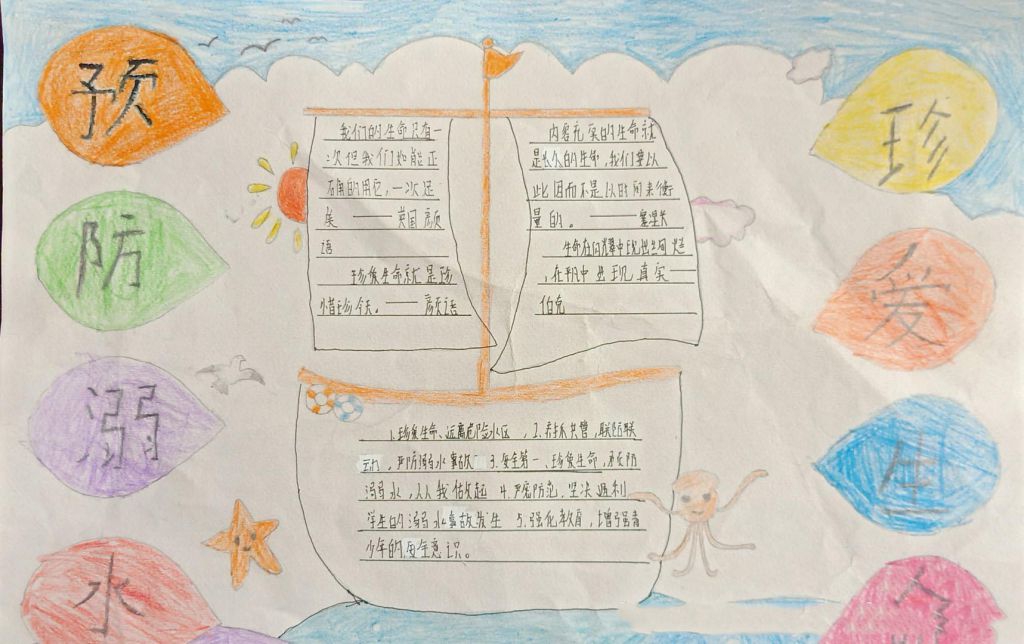 预
防
溺
水
我们的生命只有一
次但我们如能正
确的用它,一次足
矣——英国颜
语
珍爱生命就是珍
惜珍今天。——颜语
内容充实的生命就
是长久的生命,我们要以
此因而不是以时间来衡
量的。——塞涅卡
生命在闪耀中现出
,在平中出现真实——
伯克
1.珍爱生命、远离危险水区,2.群抓共管,联防联
动,严防溺水事故 3.安全第一、珍爱生命,预防
溺水,从我做起 4.严密防范,坚决遏制
学生的溺水事故发生 5.强化教育,增强青
少年的安全意识。
珍
爱
生